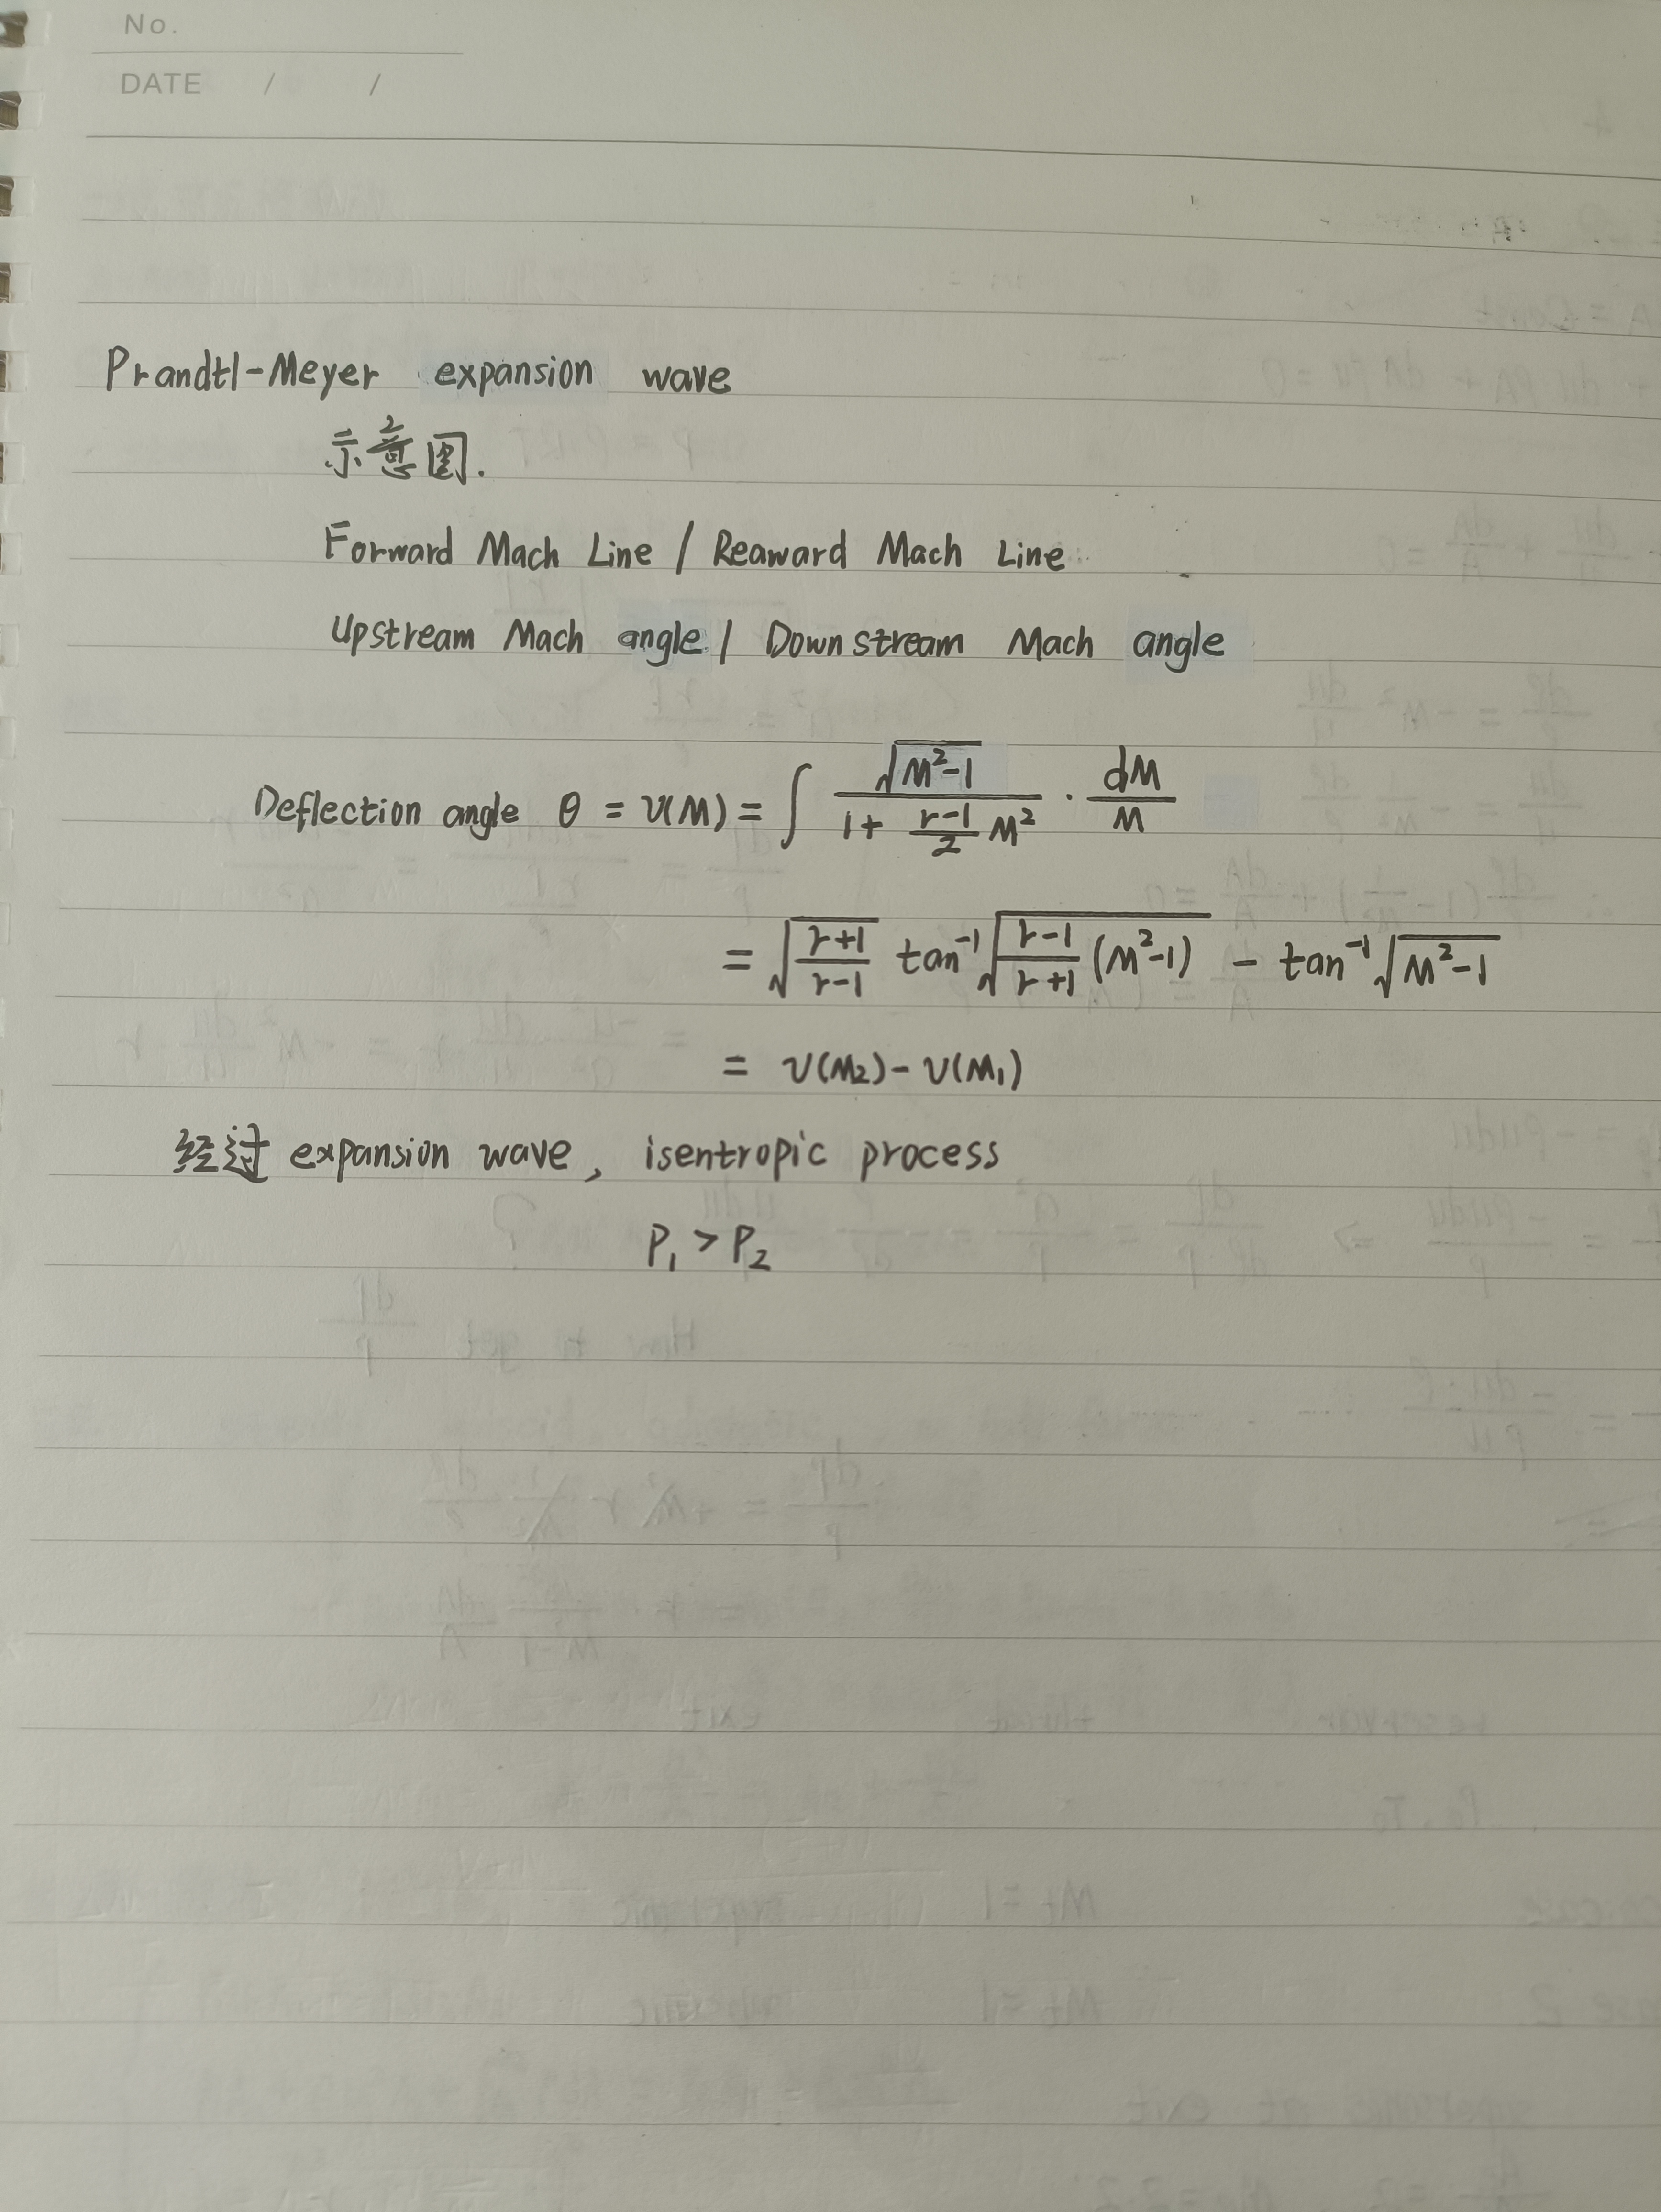 No.
DATE / /
Prandtl-Meyer expansion wave
示意图.
Forward Mach Line / Reaward Mach Line
Upstream Mach angle / Downstream Mach angle
Deflection angle θ = ν(M) = ∫ √(M²-1) / (1 + (r-1)/2 M²) · dM/M
= √((r+1)/(r-1)) tan⁻¹ √((r-1)/(r+1) (M²-1)) - tan⁻¹ √(M²-1)
= ν(M₂) - ν(M₁)
经过 expansion wave, isentropic process
P₁ > P₂